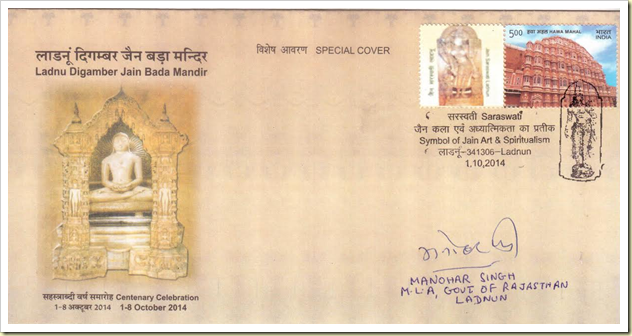 लाडनूं दिगम्बर जैन बड़ा मन्दिर
Ladnu Digamber Jain Bada Mandir
विशेष आवरण SPECIAL COVER
5.00 हवा महल HAWA MAHAL भारत INDIA
सरस्वती Saraswati
जैन कला एवं अध्यात्मिकता का प्रतीक
Symbol of Jain Art & Spiritualism
लाडनूं-341306-Ladnun
1.10.2014
MANOHAR SINGH
M.L.A, GOVT OF RAJASTHAN
LADNUN
सहस्त्राब्दी वर्ष समारोह Centenary Celebration
1-8 अक्टूबर 2014 1-8 October 2014